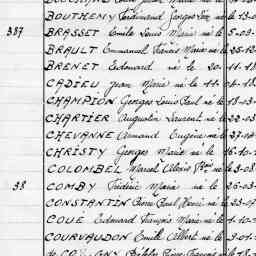 BOUTHEMY Ferdinand Georges Léon né le 13-0
387 BRASSET Emile Louis Marie né le 5-03-
BRAULT Emmanuel François Marie né le
BRENET Edouard né le 20-11-18
CADIEU Jean Marie né le 11-04-18
CHAMPION Georges Louis Paul né le 18-03-
CHARTIER Augustin Laurent né le 22-03
CHEVANNE Armand Eugène né le 27-04
CHRISTY Georges Marie né le
COLOMBEL Marcel Alexis né le 3-08
38 COMBY Frédéric Marie né le 26-03-
CONSTANTIN Pierre Paul Henri né le 23-0
COUE Edouard François Marie né le 1-0
COURVAUDON Emile Albert né le 9-01-